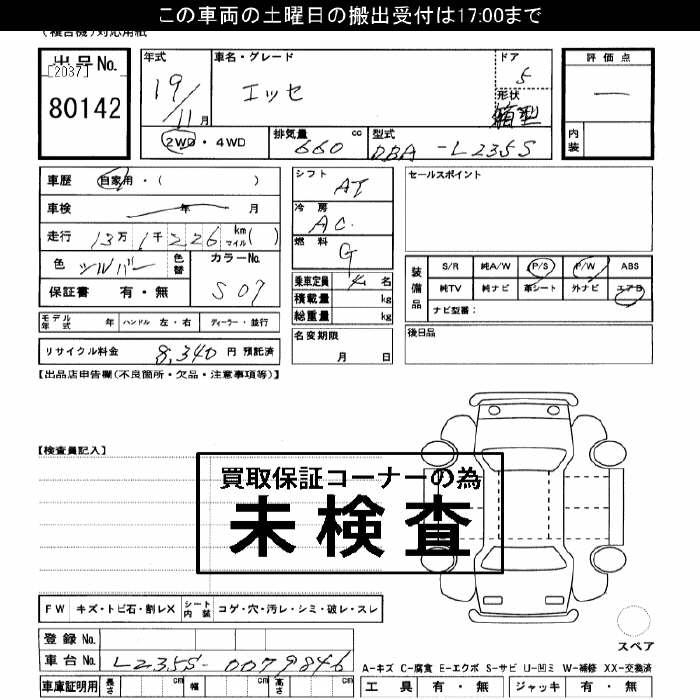 この車両の土曜日の搬出受付は17:00まで
(複合機)対応用紙
出品No.
[2037]
80142
年式
19/11月
車名・グレード
エッセ
ドア
5
形状
箱型
評価点
内装
2WD・4WD
排気量 660 cc
型式 DBA-L235S
車歴 自家用・( )
車検 年 月
走行 13万1千226 km マイル( )
色 シルバー 色替
カラーNo. S07
保証書 有・無
シフト AT
冷房 AC.
燃料 G
乗車定員 4 名
積載量 kg
総重量 kg
名変期限
月 日
セールスポイント
装備品
S/R 純A/W P/S P/W ABS
純TV 純ナビ 革シート 外ナビ エアB
ナビ型番:
後日品
モデル年式 年 ハンドル 左・右 ディーラー・並行
リサイクル料金 8,340 円 預託済
【出品店申告欄(不良箇所・欠品・注意事項等)】
【検査員記入】
買取保証コーナーの為
未検査
FW キズ・トビ石・割レX シート内装 コゲ・穴・汚レ・シミ・破レ・スレ
スペア
登録No.
車台No. L235S-0079846
A-キズ C-腐食 E-エクボ S-サビ U-凹ミ W-補修 XX-交換済
車庫証明用 長さ cm 幅 cm 高さ cm
工具 有・無 ジャッキ 有・無